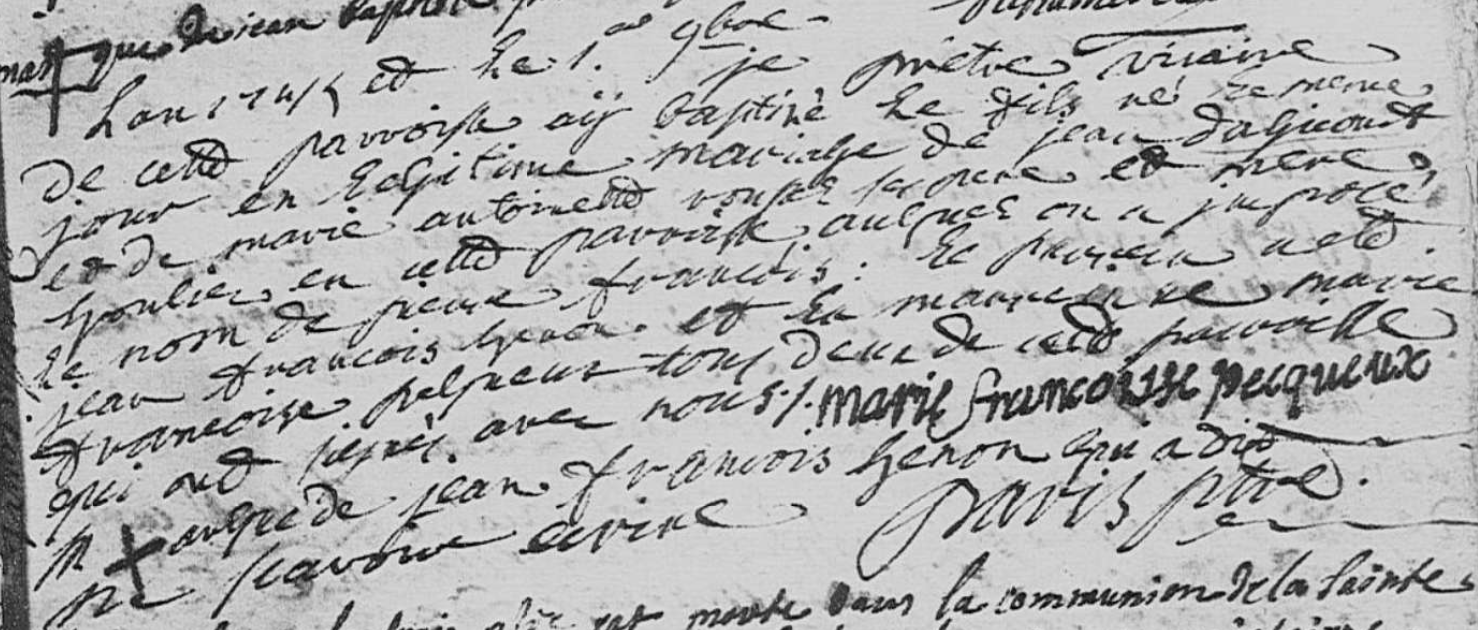 marque de jean baptiste
Lan 174 et le 1.er 9bre je prêtre vicaire
de cette parroisse aÿ baptisé le fils né le meme
jour en legitime mariage de jean
et de marie antoinette ses pere et mere
en cette parroisse auquel on a imposé
le nom de pierre françois : le parrein a eté
jean françois henon . et la marreinne marie
françoise pesqueur tous deux de cette parroisse
qui ont signé avec nous ./. marie francoisse pecqueux
m + arque de jean françois henon qui a dit
ne scavoir ecrire Davis ptre.
est morte dans la communion de la sainte